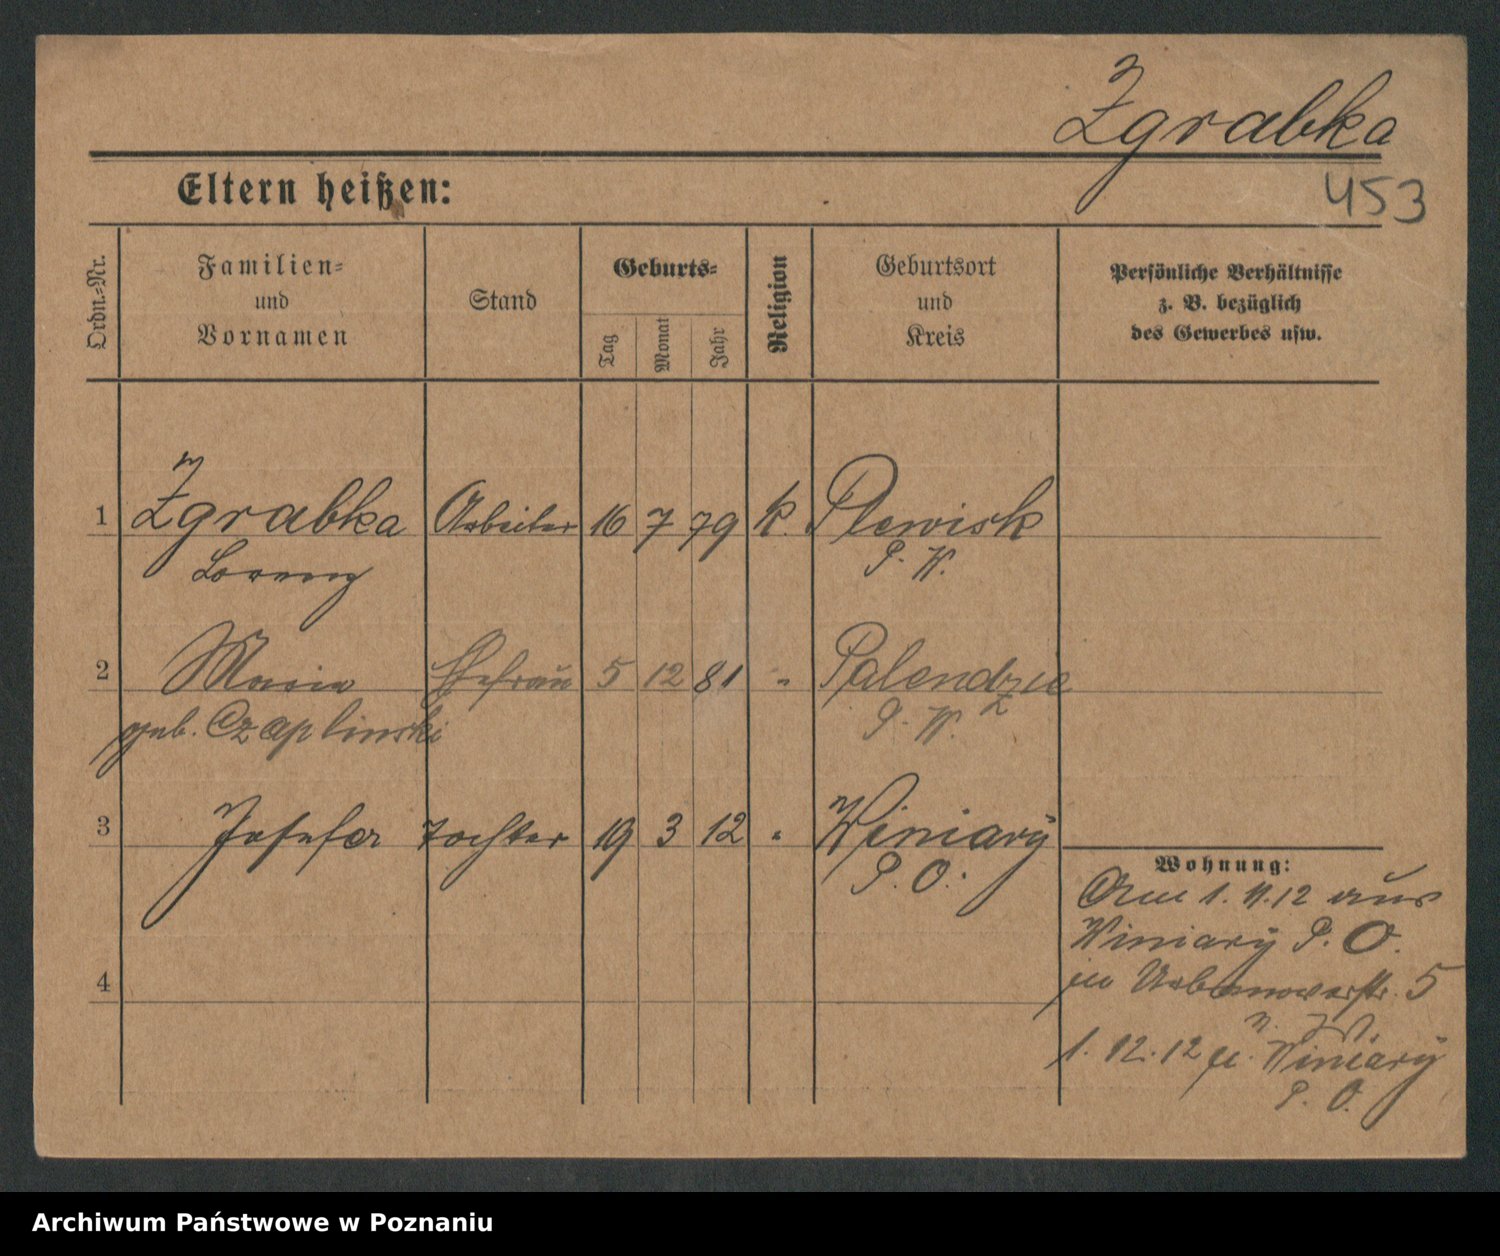 Zgrabka
453
Eltern heißen:
Ordn.-Nr.
Familien-
und
Vornamen
Stand
Geburts-
Tag
Monat
Jahr
Religion
Geburtsort
und
Kreis
Persönliche Verhältnisse
z. B. bezüglich
des Gewerbes usw.
1 Zgrabka Arbeiter 16 7 79 k. Plewisk
Lorenz P. W.
2 Maria Ehefrau 5 12 81 " Palendzie
geb. Czaplinski P. W. z
3 Josefa Tochter 19 3 12 " Winiary
P. O.
Wohnung:
Am 1. 11. 12 aus
Winiary P. O.
in Urbanowerstr. 5
4
1. 12. 12 Winiary
P. O.
Archiwum Państwowe w Poznaniu